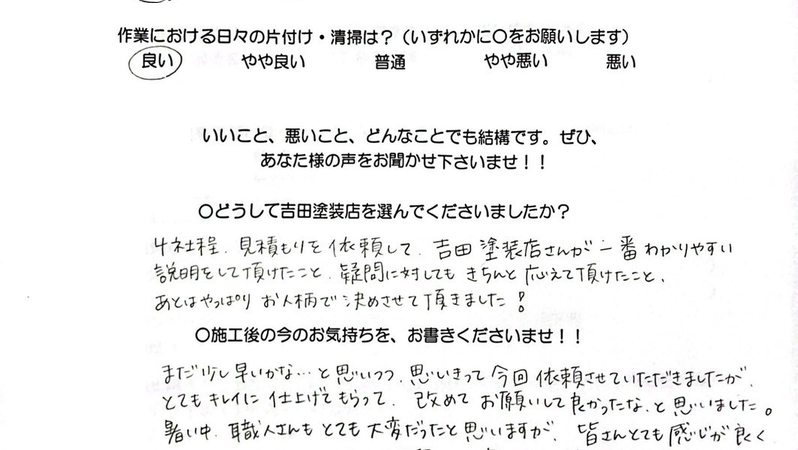 作業における日々の片付け・清掃は？（いずれかに〇をお願いします）
良い　やや良い　普通　やや悪い　悪い
いいこと、悪いこと、どんなことでも結構です。ぜひ、
あなた様の声をお聞かせ下さいませ！！
〇どうして吉田塗装店を選んでくださいましたか？
4社程、見積もりを依頼して、吉田塗装店さんが一番わかりやすい
説明をして頂けたこと、疑問に対してもきちんと応えて頂けたこと、
あとはやっぱりお人柄で決めさせて頂きました！
〇施工後の今のお気持ちを、お書きくださいませ！！
まだ少し早いかな…と思いつつ、思いきって今回依頼させていただきましたが、
とてもキレイに仕上げてもらって、改めてお願いして良かったな、と思いました。
暑い中、職人さんもとても大変だったと思いますが、皆さんとても感じが良く